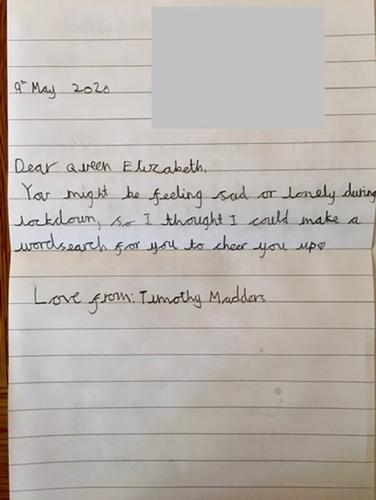 9th May 2020
Dear Queen Elizabeth,
You might be feeling sad or lonely during
lockdown, so I thought I could make a
wordsearch for you to cheer you up
Love from: Timothy Madders